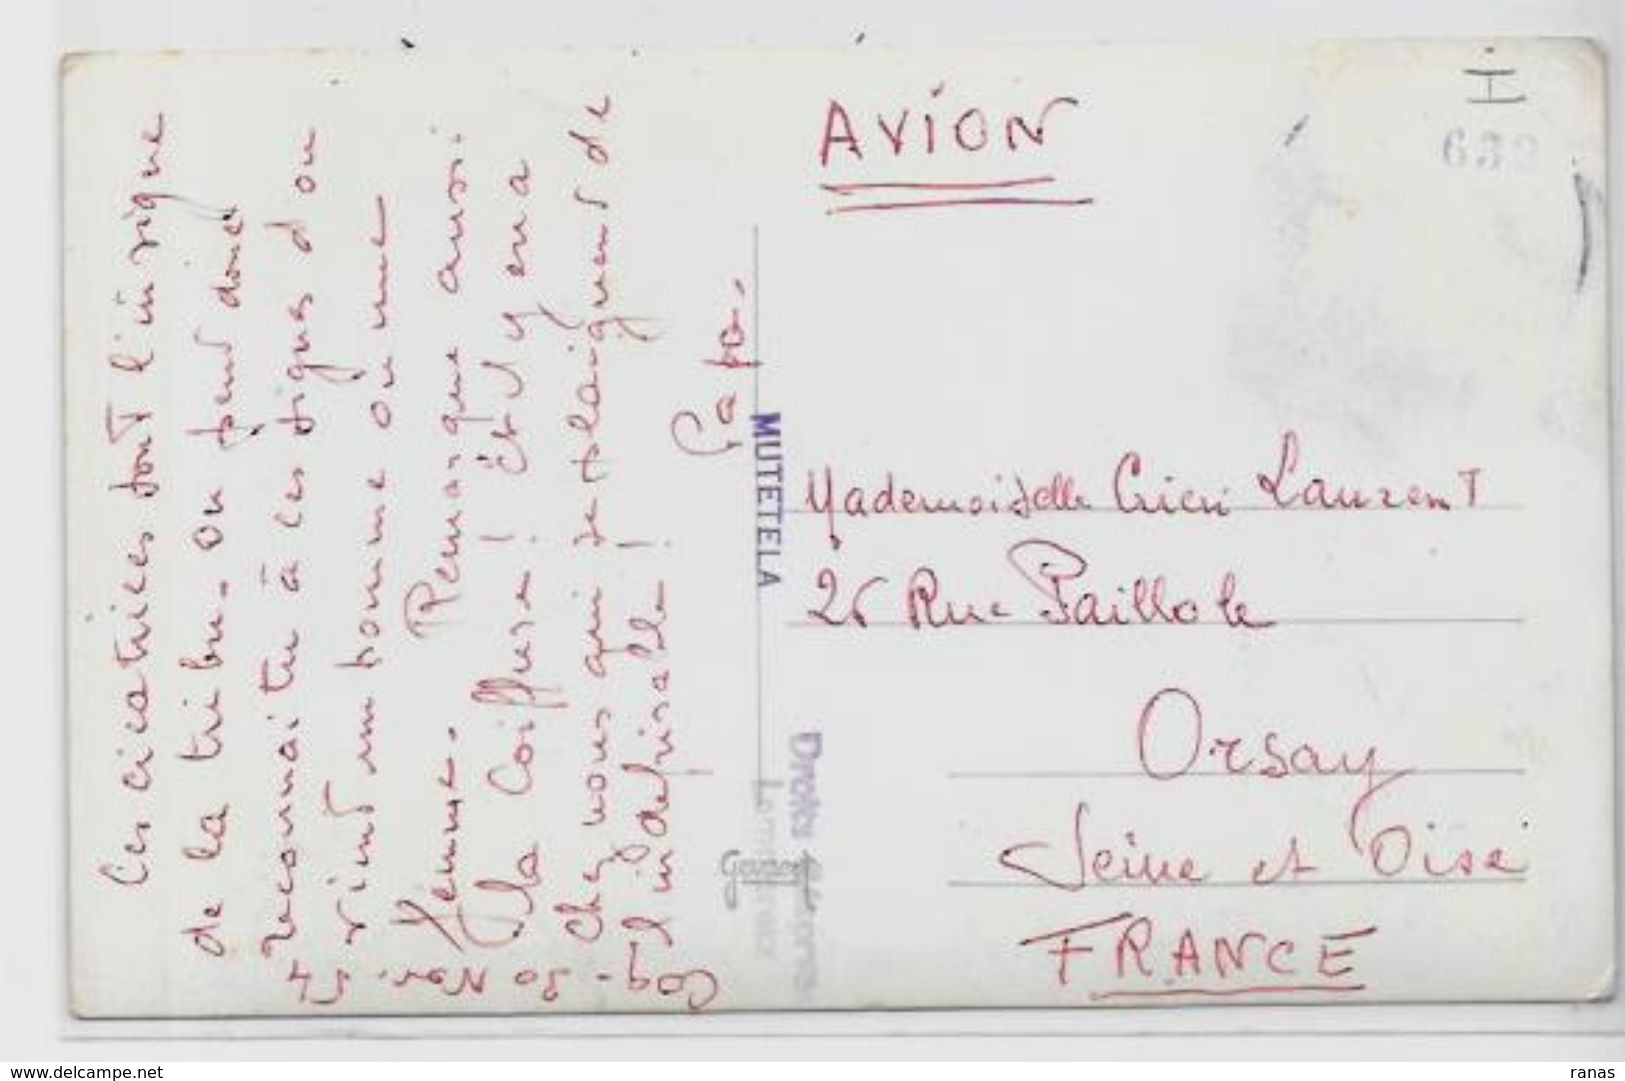 Ces cicatrices sont l'insigne
de la tribu - on peut donc
reconnaitre à ces signes d'où
vient un homme ou une
femme. Remarque aussi
la coiffure ! Et il y en a
chez nous qui se plaignent de
l'indéfrisable !
Papa.
MUTETELA
Droits
AVION
H
632
Mademoiselle Laurent
26 Rue Paillole
Orsay
Seine et Oise
FRANCE
www.delcampe.net
ranas